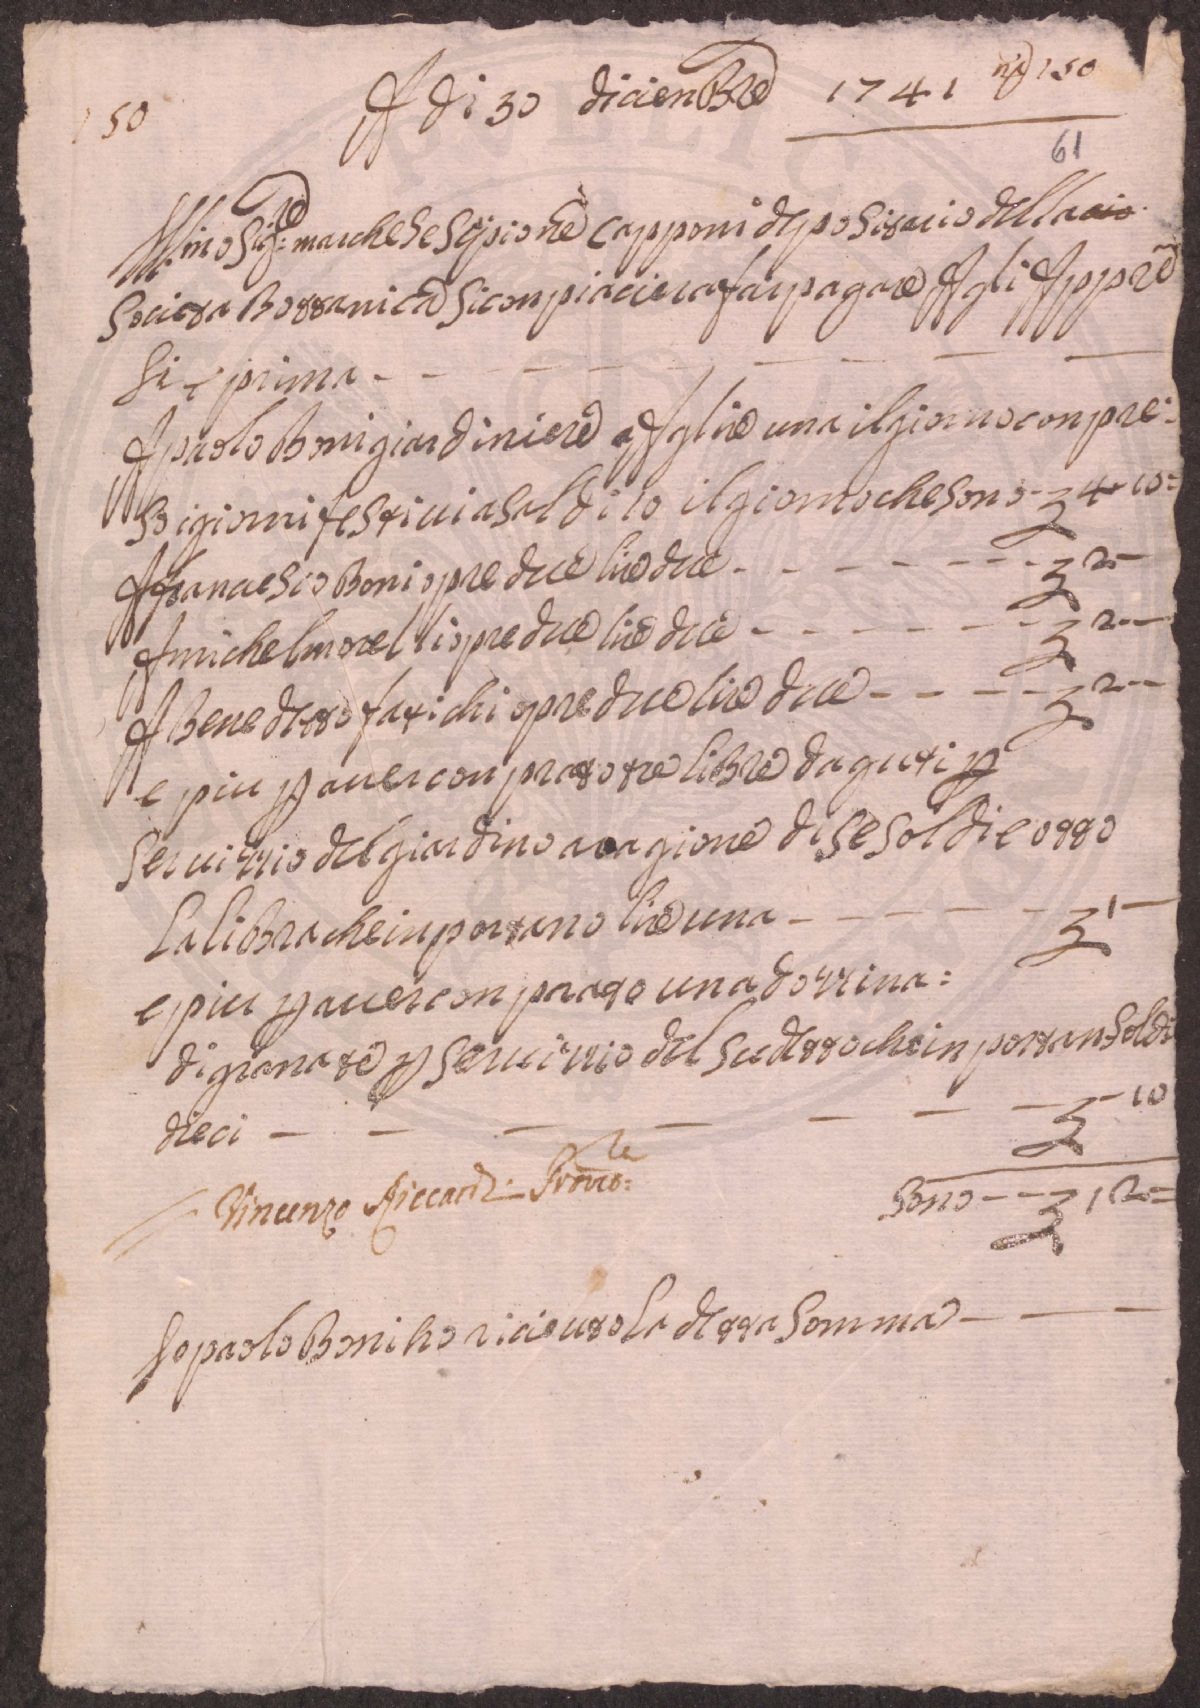 150
A di 30 dicienBre 1741 n° 150
61
Ill:mo Sig:re marchese Scipione Capponi depositario della cio
Societa Bottanica si conpiaciera far pagare A gli Appre
si e prima
A paolo Boni giardiniere a lire una il giorno conpre:
si i giorni festivi a Soldi 10 il giorno che sono £ 4-10=
A francescio Boni opre due lire due £ 2-
A michel morelli opre due lire due £ 2--
A Benedetto fatichi opre due lire due £ 2--
e piu p aver conprato tre libre daguti p
servizzio del giardino a ragione di se soldi e otto
la libra che inportano lire una £ 1-
e piu p aver conprato una dozzina:
di granate p servizzio del sudetto che inportan Soldi
dieci £ -10
Vincenzo Riccardi Provre:
Sono £ 12=
Io paolo Boni ho riceuto la detta Somma